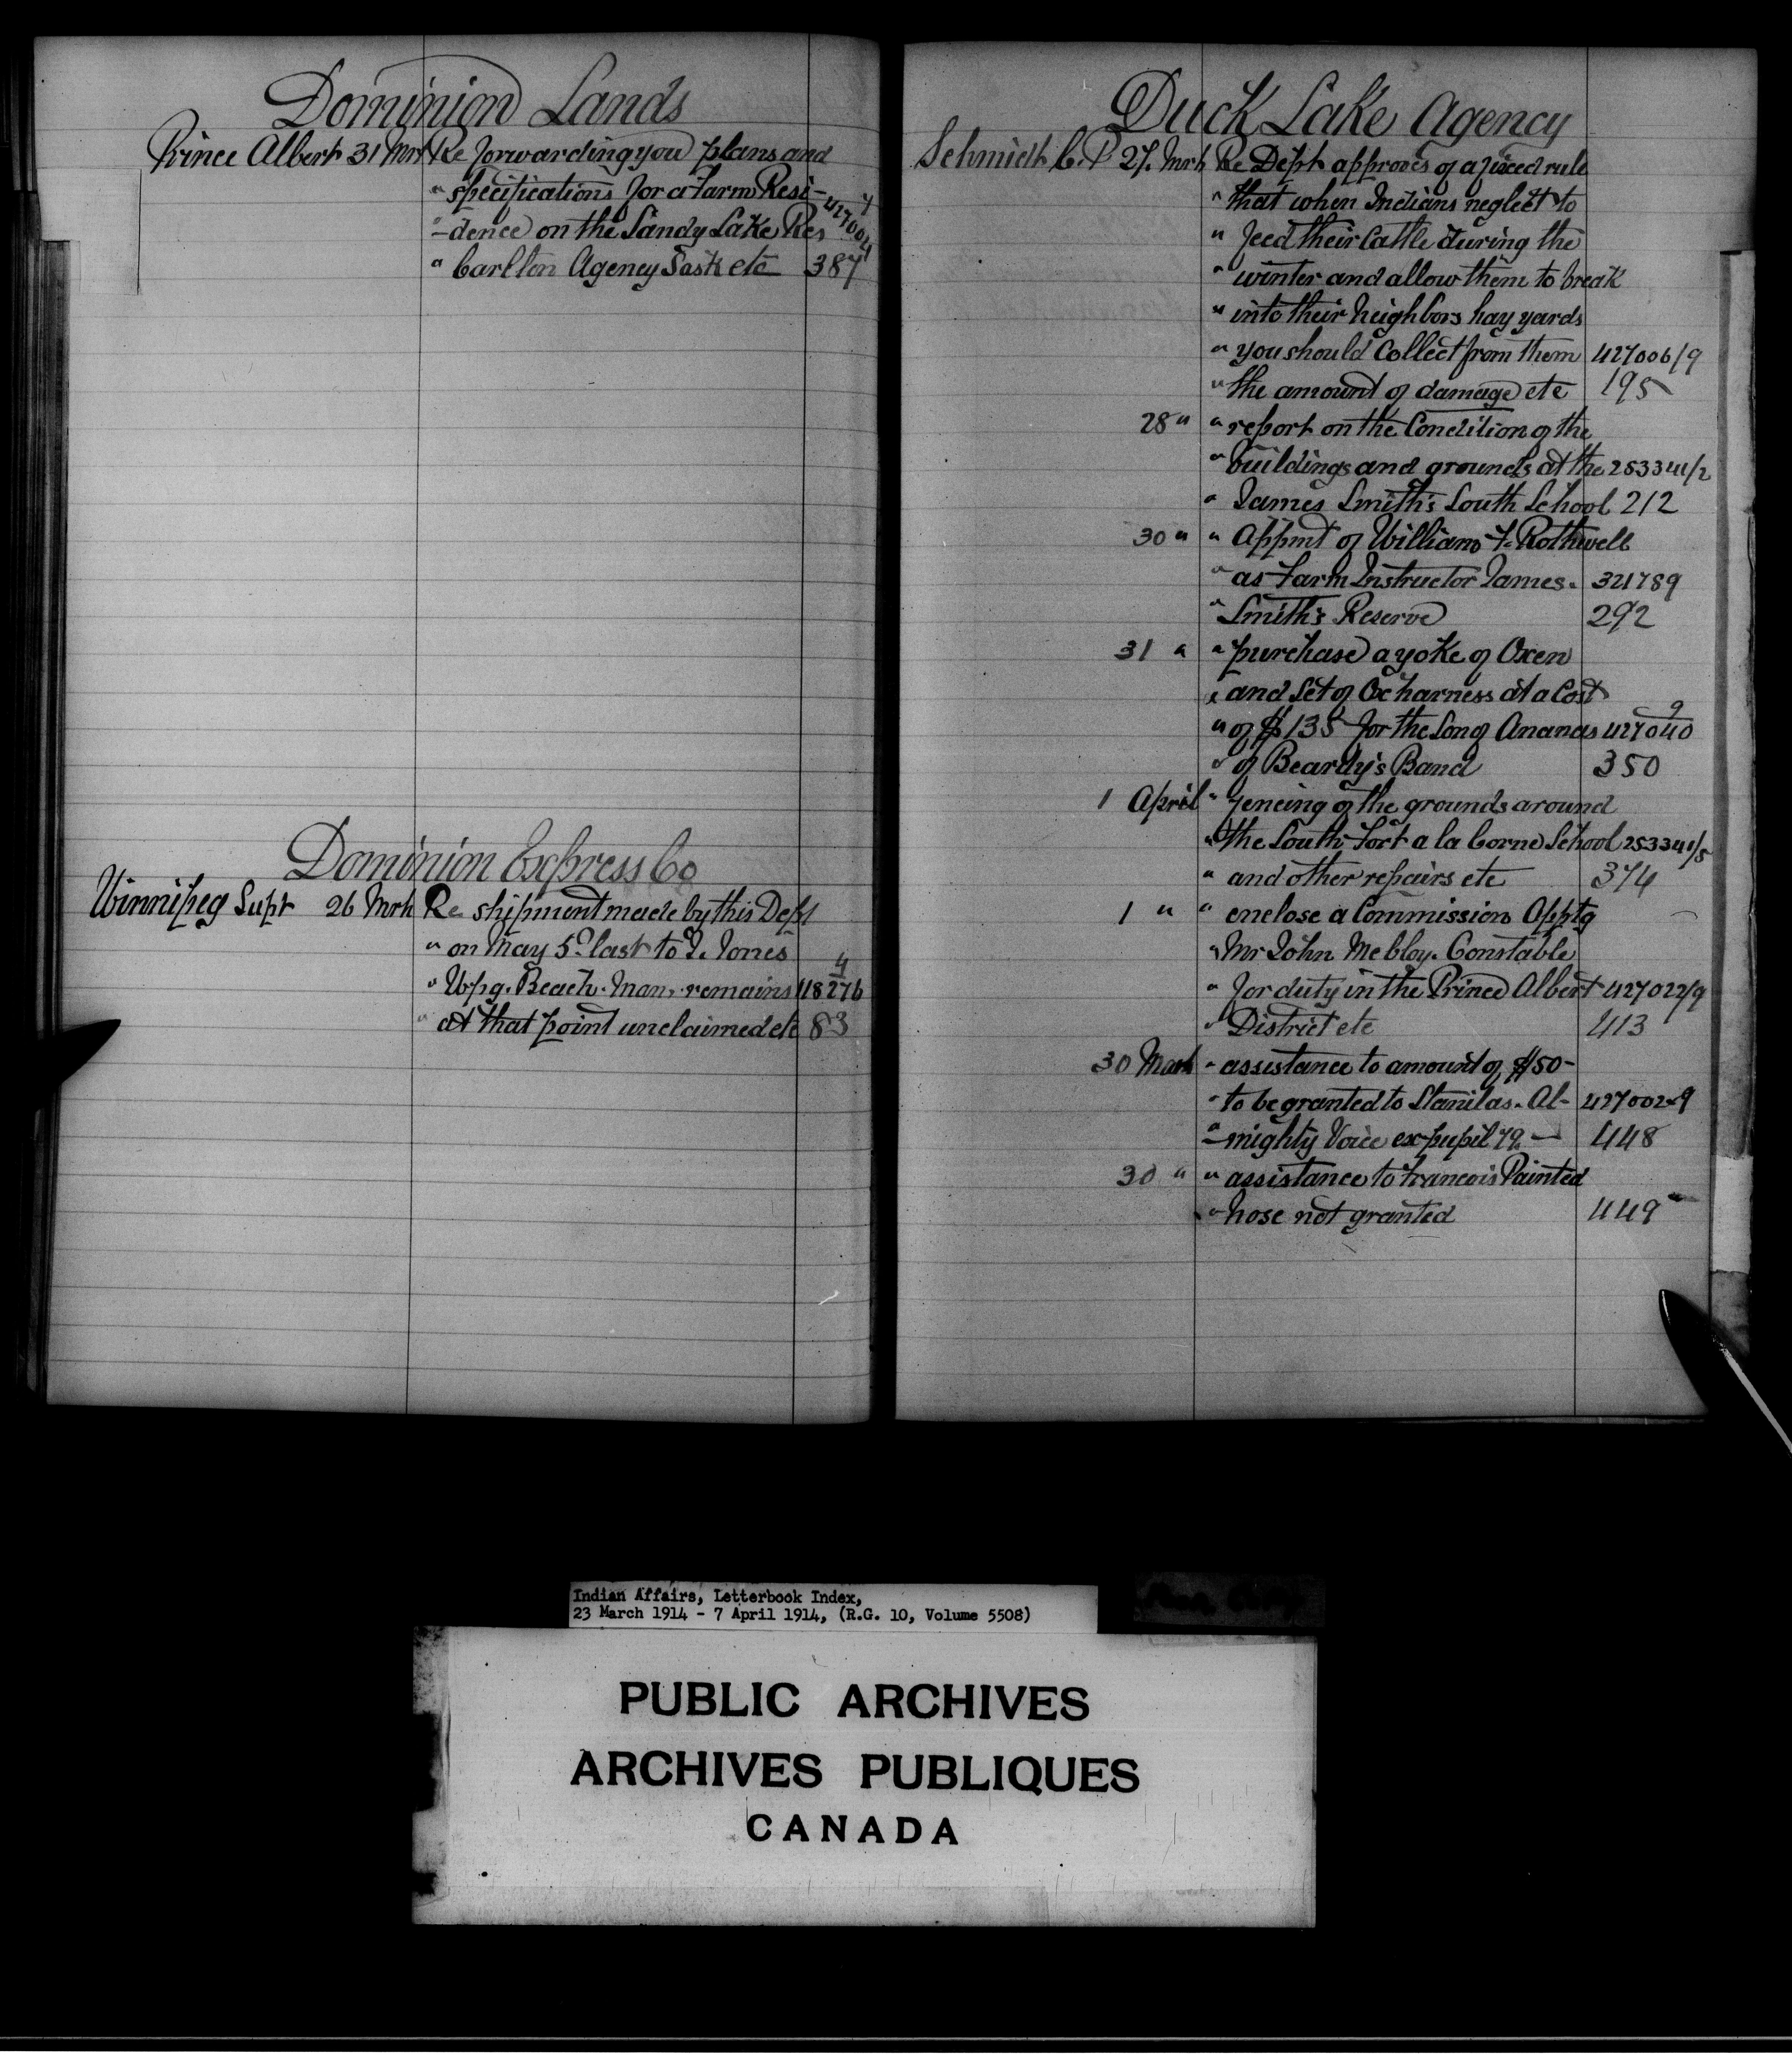 Dominion Lands
Prince Albert 31 Mrh Re forwarding you plans and
" specifications for a Farm Resi- 427004 4
" -dence on the Sandy Lake Res
" Carlton Agency Sask etc 387
Dominion Express Co
Winnipeg Supt 26 Mrh Re shipment made by this Dept
" on May 5th last to J. Jones
" Wpg. Beach. Man. remains 118276 4
" at that point unclaimed etc 83
Duck Lake Agency
Schmidt C.P 27. Mrh Re Dept approves of a fixed rule
" that when Indians neglect to
" feed their Cattle during the
" winter and allow them to break
" into their Neighbors hay yards
" you should Collect from them 427006/9
" the amount of damage etc 195
28 " " report on the Condition of the
" buildings and grounds at the 253341/2
" James Smith's South School 212
30 " " Appmt of William F. Rothwell
" as Farm Instructor James. 321789
" Smith's Reserve 292
31 " " purchase a yoke of Oxen
" and Set of Ox harness at a Cost
" of $135 for the Son of Ananas 427040 9
" of Beardy's Band 350
1 April " fencing of the grounds around
" the South Fort a la Corne School 253341/5
" and other repairs etc 374
1 " " enclose a Commission Apptg
" Mr John McCloy. Constable
" for duty in the Prince Albert 427022/9
" District etc 413
30 March " assistance to amount of $50-
" to be granted to Stanilas. Al- 427002-9
" -mighty Voice ex-pupil 79 — 448
30 " " assistance to Francois Painted
" nose not granted 449
Indian Affairs, Letterbook Index,
23 March 1914 - 7 April 1914, (R.G. 10, Volume 5508)
PUBLIC ARCHIVES
ARCHIVES PUBLIQUES
CANADA